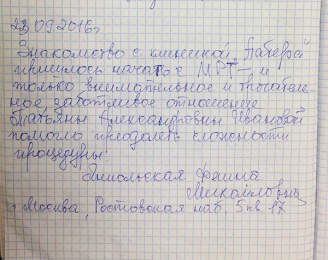 23.09.2016г
Знакомство с клиникой "Пабера"
пришлось начать с МРТ — и
только внимательное и
заботливое отношение
Татьяны Александровны Ивановой
помогло преодолеть сложности
процедуры.
Фаина
Михайловна
г Москва, Ростовская наб, 5 кв 17